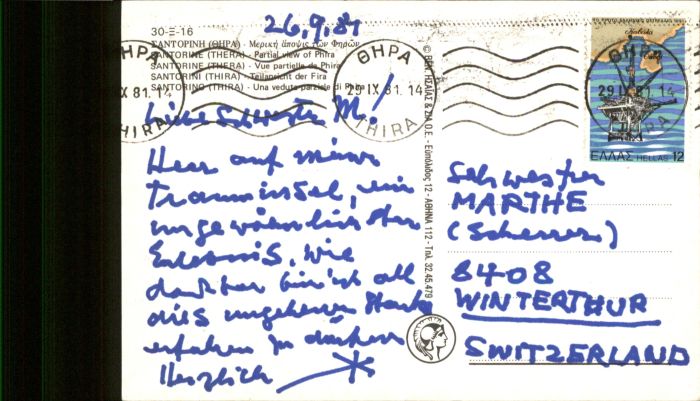 26.9.81
30-Ξ-16
ΣΑΝΤΟΡΙΝΗ (ΘΗΡΑ) - Μερική άποψις των Φηρών
SANTORINE (THERA) - Partial view of Phira
SANTORINE (THIRA) - Vue partielle de Phira
SANTORINI (THIRA) - Teilansicht der Fira
SANTORINO (THIRA) - Una veduta parziale di
ΘΗΡΑ
29 IX 81. 14
THIRA
ΗΡΑ
IX 81. 14
HIRA
Liebe Schwester M.!
Hier auf meiner
Trauminsel, ein
ungewöhnlichster
Erlebnis. Wie
dankbar bin ich all
dies
erfahren zu dürfen
Herzlich
ΗΣΑΪΑΣ & ΣΙΑ Ο.Ε. - Ευπόλιδος 12 - ΑΘΗΝΑ 112 - Τηλ. 32.45.479
ΘΗΡΑ
29 IX 81. 14
ΕΛΛΑΣ HELLAS 12
Schwester
MARTHE
(Scherrer)
8408
WINTERTHUR
SWITZERLAND